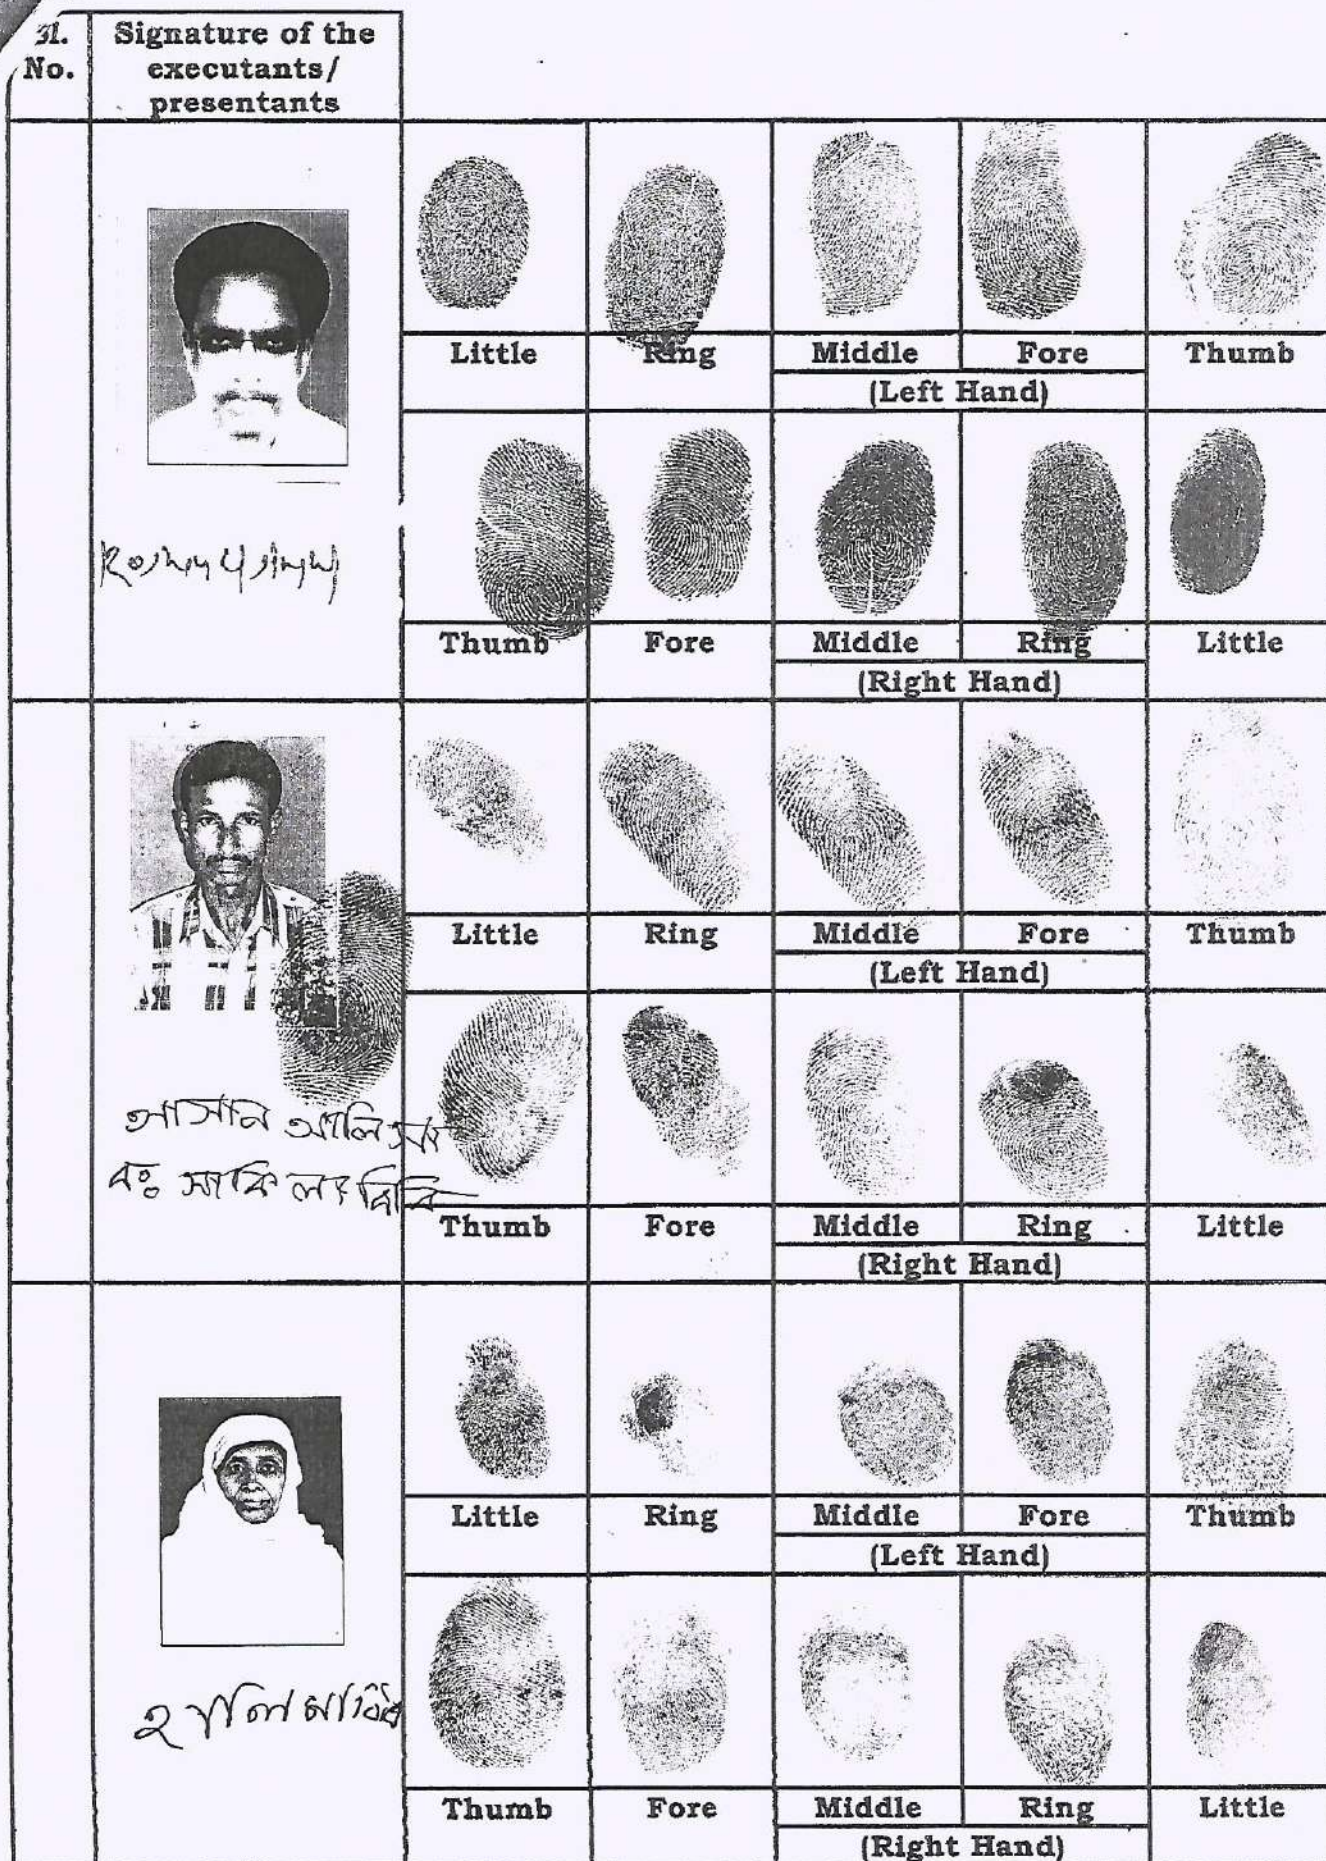 Sl. No.
Signature of the executants/ presentants
Little Ring Middle Fore Thumb
(Left Hand)
Thumb Fore Middle Ring Little
(Right Hand)
Little Ring Middle Fore Thumb
(Left Hand)
আসান আলি
বঃ
Thumb Fore Middle Ring Little
(Right Hand)
Little Ring Middle Fore Thumb
(Left Hand)
Thumb Fore Middle Ring Little
(Right Hand)